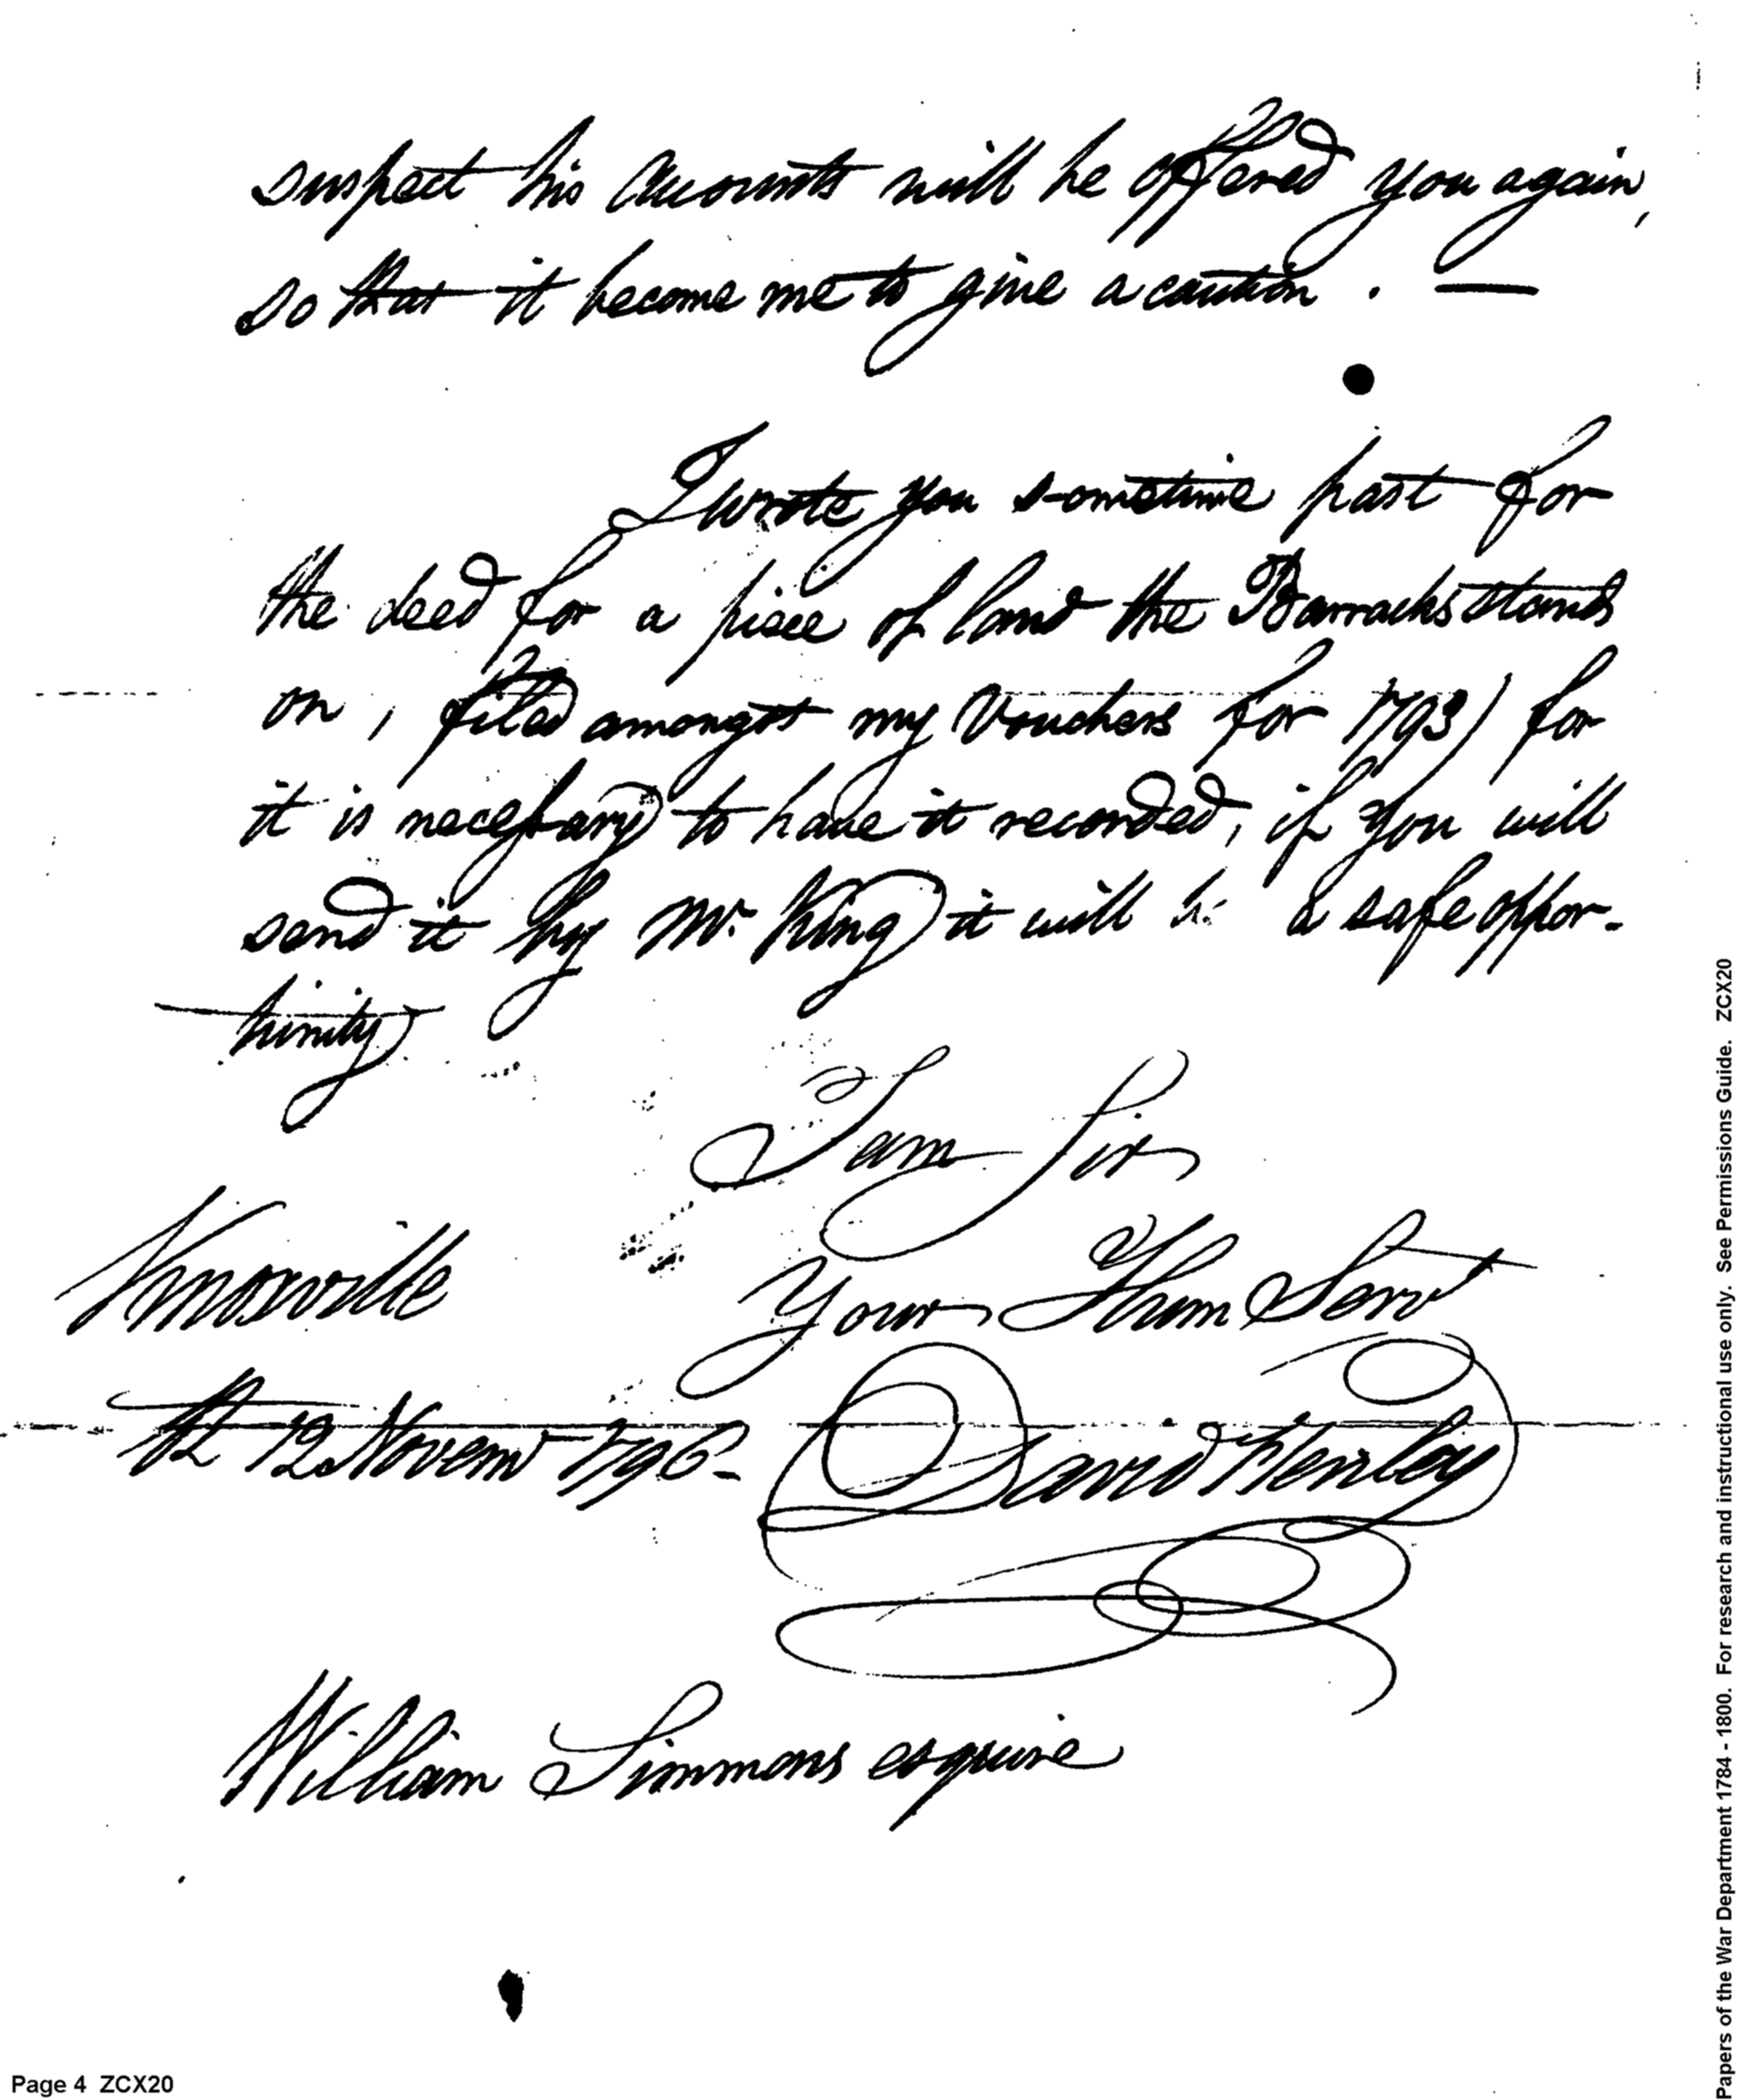 suspect his Accounts will be offered you again,
so that it become me to give a caution . —
I wrote you sometime past for
the deed for a piece of land the Barracks stands
on, filed amongst my Vouchers for 1793, for
it is necessary to have it recorded, if you will
send it by Mr. King it will be a safe oppor-
tunity
I am Sir
Knoxville
Your Hum Servt
the 12 Novemr 1796-
David Henley
William Simmons esquire
Page 4 ZCX20
Papers of the War Department 1784 - 1800. For research and instructional use only. See Permissions Guide. ZCX20